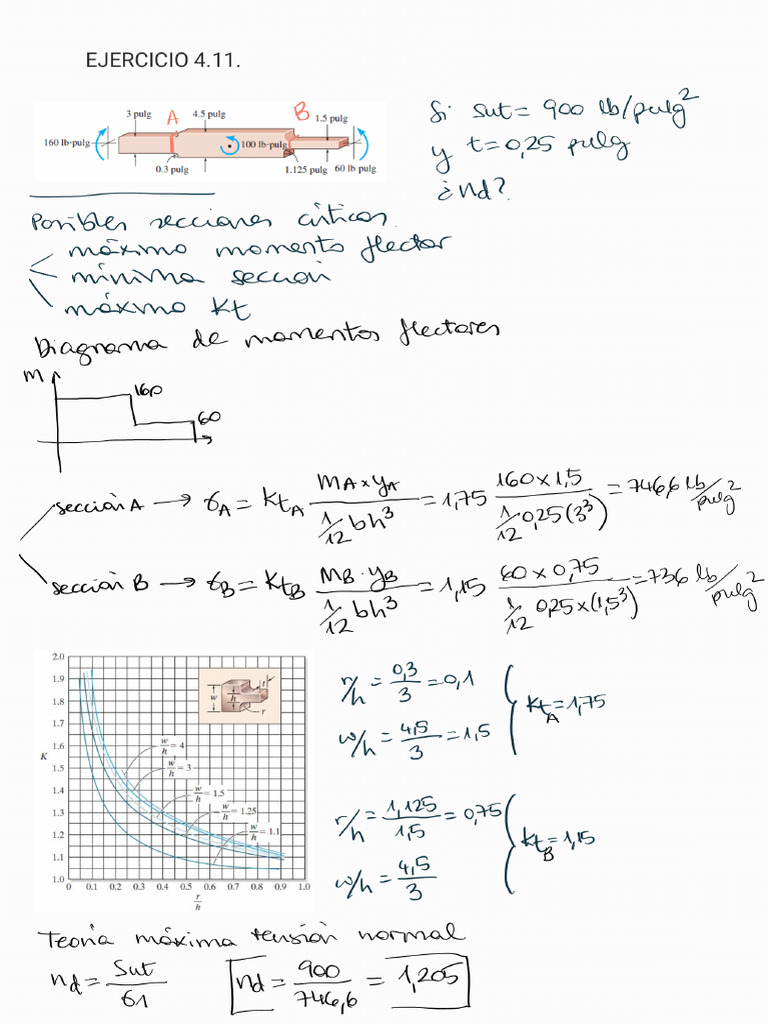 EJERCICIO 4.11.
3 pulg A 4.5 pulg B 1.5 pulg
160 lb·pulg 100 lb·pulg
0.3 pulg 1.125 pulg 60 lb pulg
Si Sut = 900 lb/pulg²
y t = 0,25 pulg
¿nd?
Posibles secciones críticas.
máximo momento flector
mínima sección
máximo Kt
Diagrama de momentos flectores
M
160
60
sección A → σA = KtA MA x yA / 1/12 bh³ = 1,75 160 x 1,5 / 1/12 0,25 (3³) = 746,6 lb/pulg²
sección B → σB = KtB MB · yB / 1/12 bh³ = 1,15 60 x 0,75 / 1/12 0,25 x (1,5³) = 736 lb/pulg²
2.0
1.9
1.8
1.7
1.6
1.5
1.4
1.3
1.2
1.1
1.0
K
w h r t
w/h = 4
w/h = 3
w/h = 1.5
w/h = 1.25
w/h = 1.1
0 0.1 0.2 0.3 0.4 0.5 0.6 0.7 0.8 0.9 1.0
r/h
r/h = 0,3/3 = 0,1
w/h = 4,5/3 = 1,5
KtA = 1,75
r/h = 1,125/1,5 = 0,75
w/h = 4,5/3
KtB = 1,15
Teoría máxima tensión normal
nd = Sut/σ1 nd = 900/746,6 = 1,205